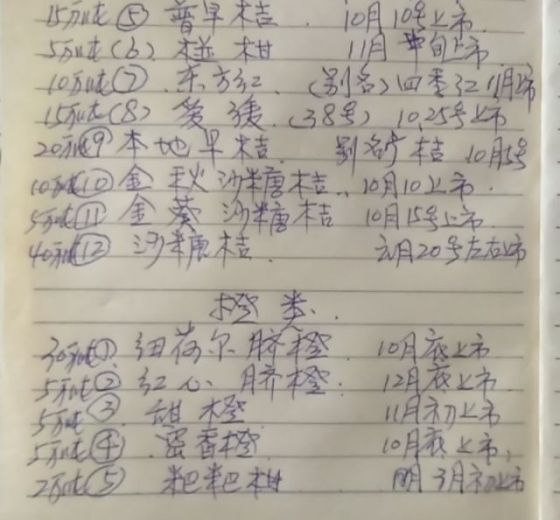 15万吨⑤ 普早桔 10月10号上市
5万吨(6) 椪柑 11月中旬上市
10万吨⑦ 东方红 (别名)四季红 11月上市
15万吨(8) (38号) 10.25号上市
20万吨⑨ 本地早桔 别名 桔 10月5号
10万吨⑩ 金秋沙糖桔 10月10上市
5万吨⑪ 金葵沙糖桔 10月15号上市
40万吨⑫ 沙糖桔 元月20号左右上市
橙类
30万吨① 纽荷尔脐橙 10月底上市
5万吨② 红心脐橙 12月底上市
5万吨③ 甜橙 11月初上市
5万吨④ 蜜香橙 10月底上市
2万吨⑤ 粑粑柑 3月初上市